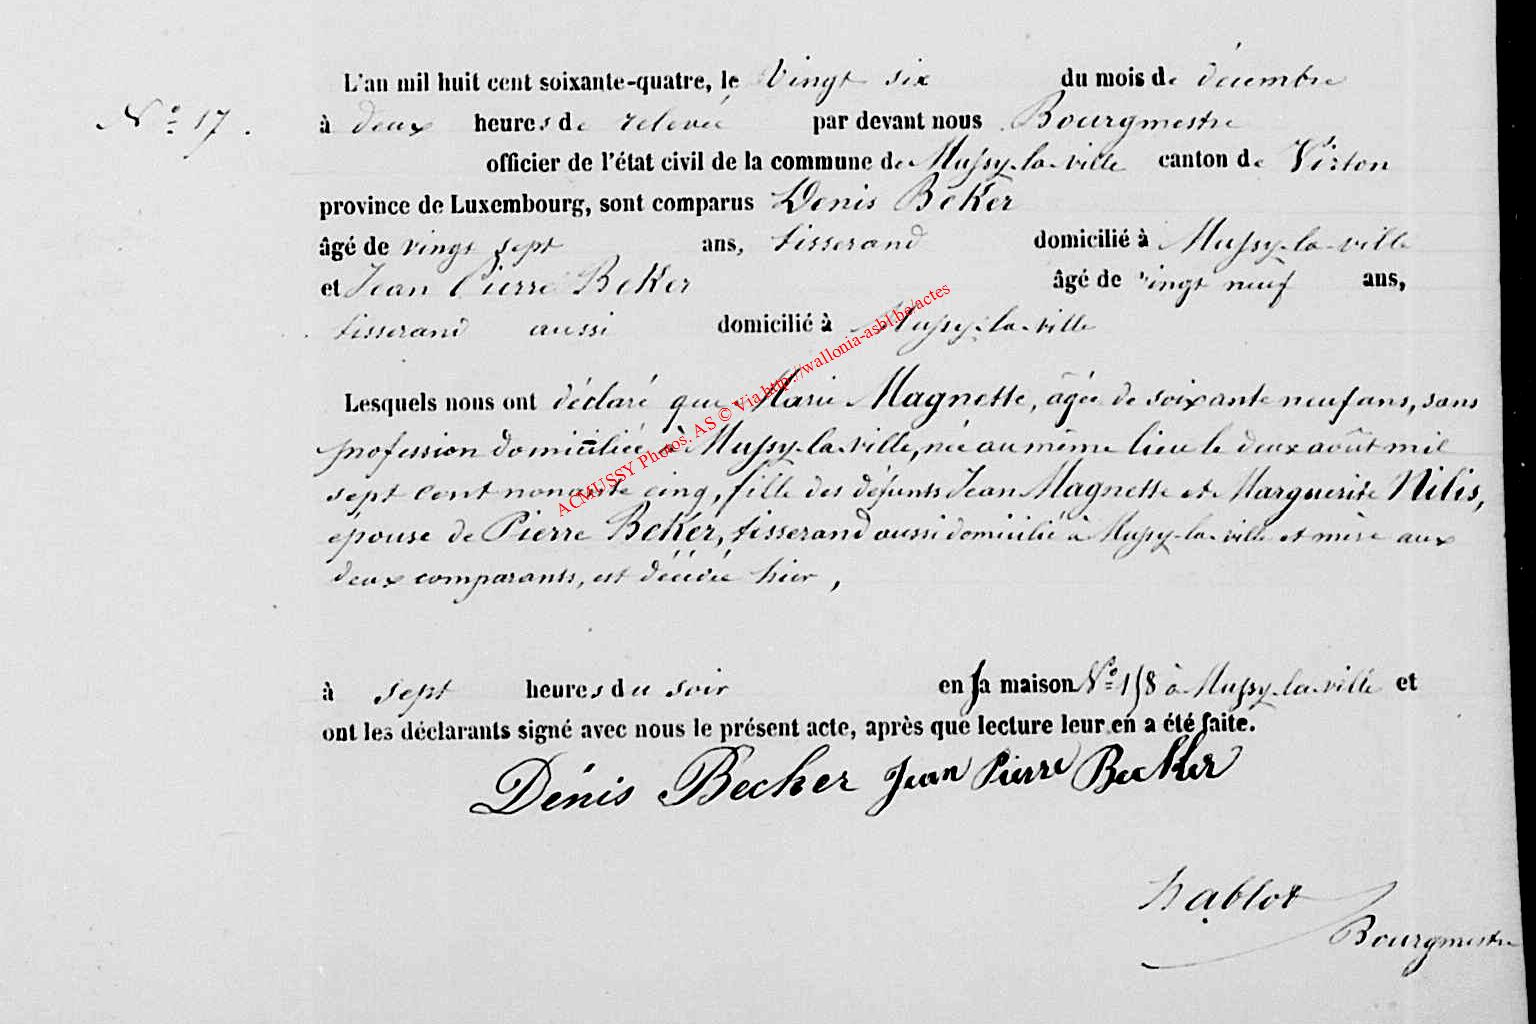 L'an mil huit cent soixante-quatre, le Vingt six du mois de décembre
N.o 17. à deux heures de relevée par devant nous Bourgmestre
officier de l'état civil de la commune de Mussy-la-ville canton de Virton
province de Luxembourg, sont comparus Denis Beker
âgé de vingt sept ans, tisserand domicilié à Mussy-la-ville
et Jean Pierre Beker âgé de vingt neuf ans,
tisserand aussi domicilié à Mussy-la-ville
Lesquels nous ont déclaré que Marie Magnette, âgée de soixante neuf ans, sans
profession domiciliée à Mussy-la-ville, née au même lieu le deux août mil
sept cent nonante cinq, fille des défunts Jean Magnette et Marguerite Nilis,
épouse de Pierre Beker, tisserand aussi domicilié à Mussy-la-ville et mère aux
deux comparants, est décédée hier,
à sept heures du soir en sa maison N.o 158 à Mussy-la-ville et
ont les déclarants signé avec nous le présent acte, après que lecture leur en a été faite.
Dénis Becker Jean Pierre Becker
Bourgmestre
ACMUSSY Photos. AS © Via http://wallonia-asbl.be/actes